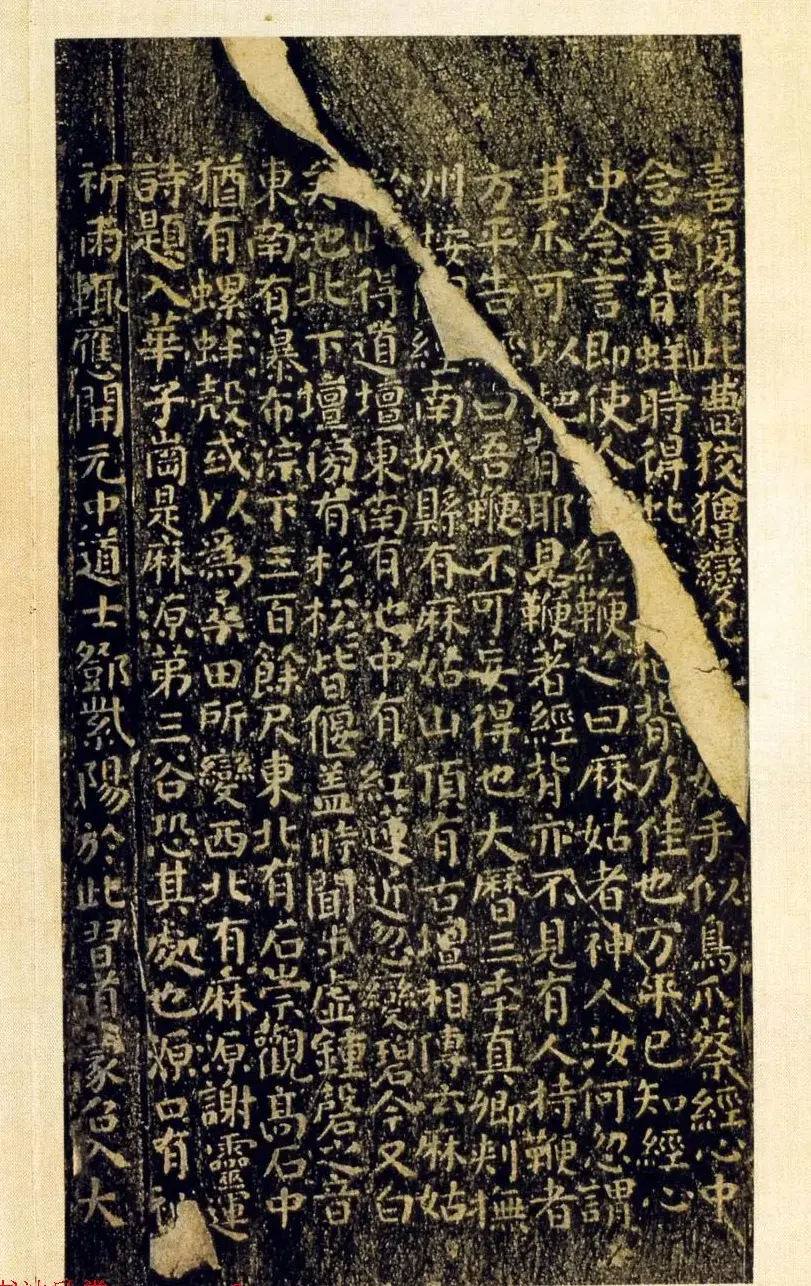 喜復作此曹狡獪變手似鳥爪蔡經心中
念言背蛘時得此杷背乃佳也方平已知經心
中念言即使人經鞭之曰麻姑者神人汝何忽謂
其爪可以杷背耶見鞭著經背亦不見有人持鞭者
方平告經曰吾鞭不可妄得也大曆三年真卿刺撫
州按經南城縣有麻姑山頂有古壇相傳云麻姑
於此得道壇東南有池中有紅蓮近忽變碧今又白
矣池北下壇傍有杉松皆偃蓋時聞步虛鍾磬之音
東南有瀑布淙下三百餘尺東北有石崇觀高石中
猶有螺蚌殼或以為桑田所變西北有麻源謝靈運
詩題入華子崗是麻源第三谷恐其處也源口有神
祈雨輒應開元中道士鄧紫陽於此習道蒙召入大